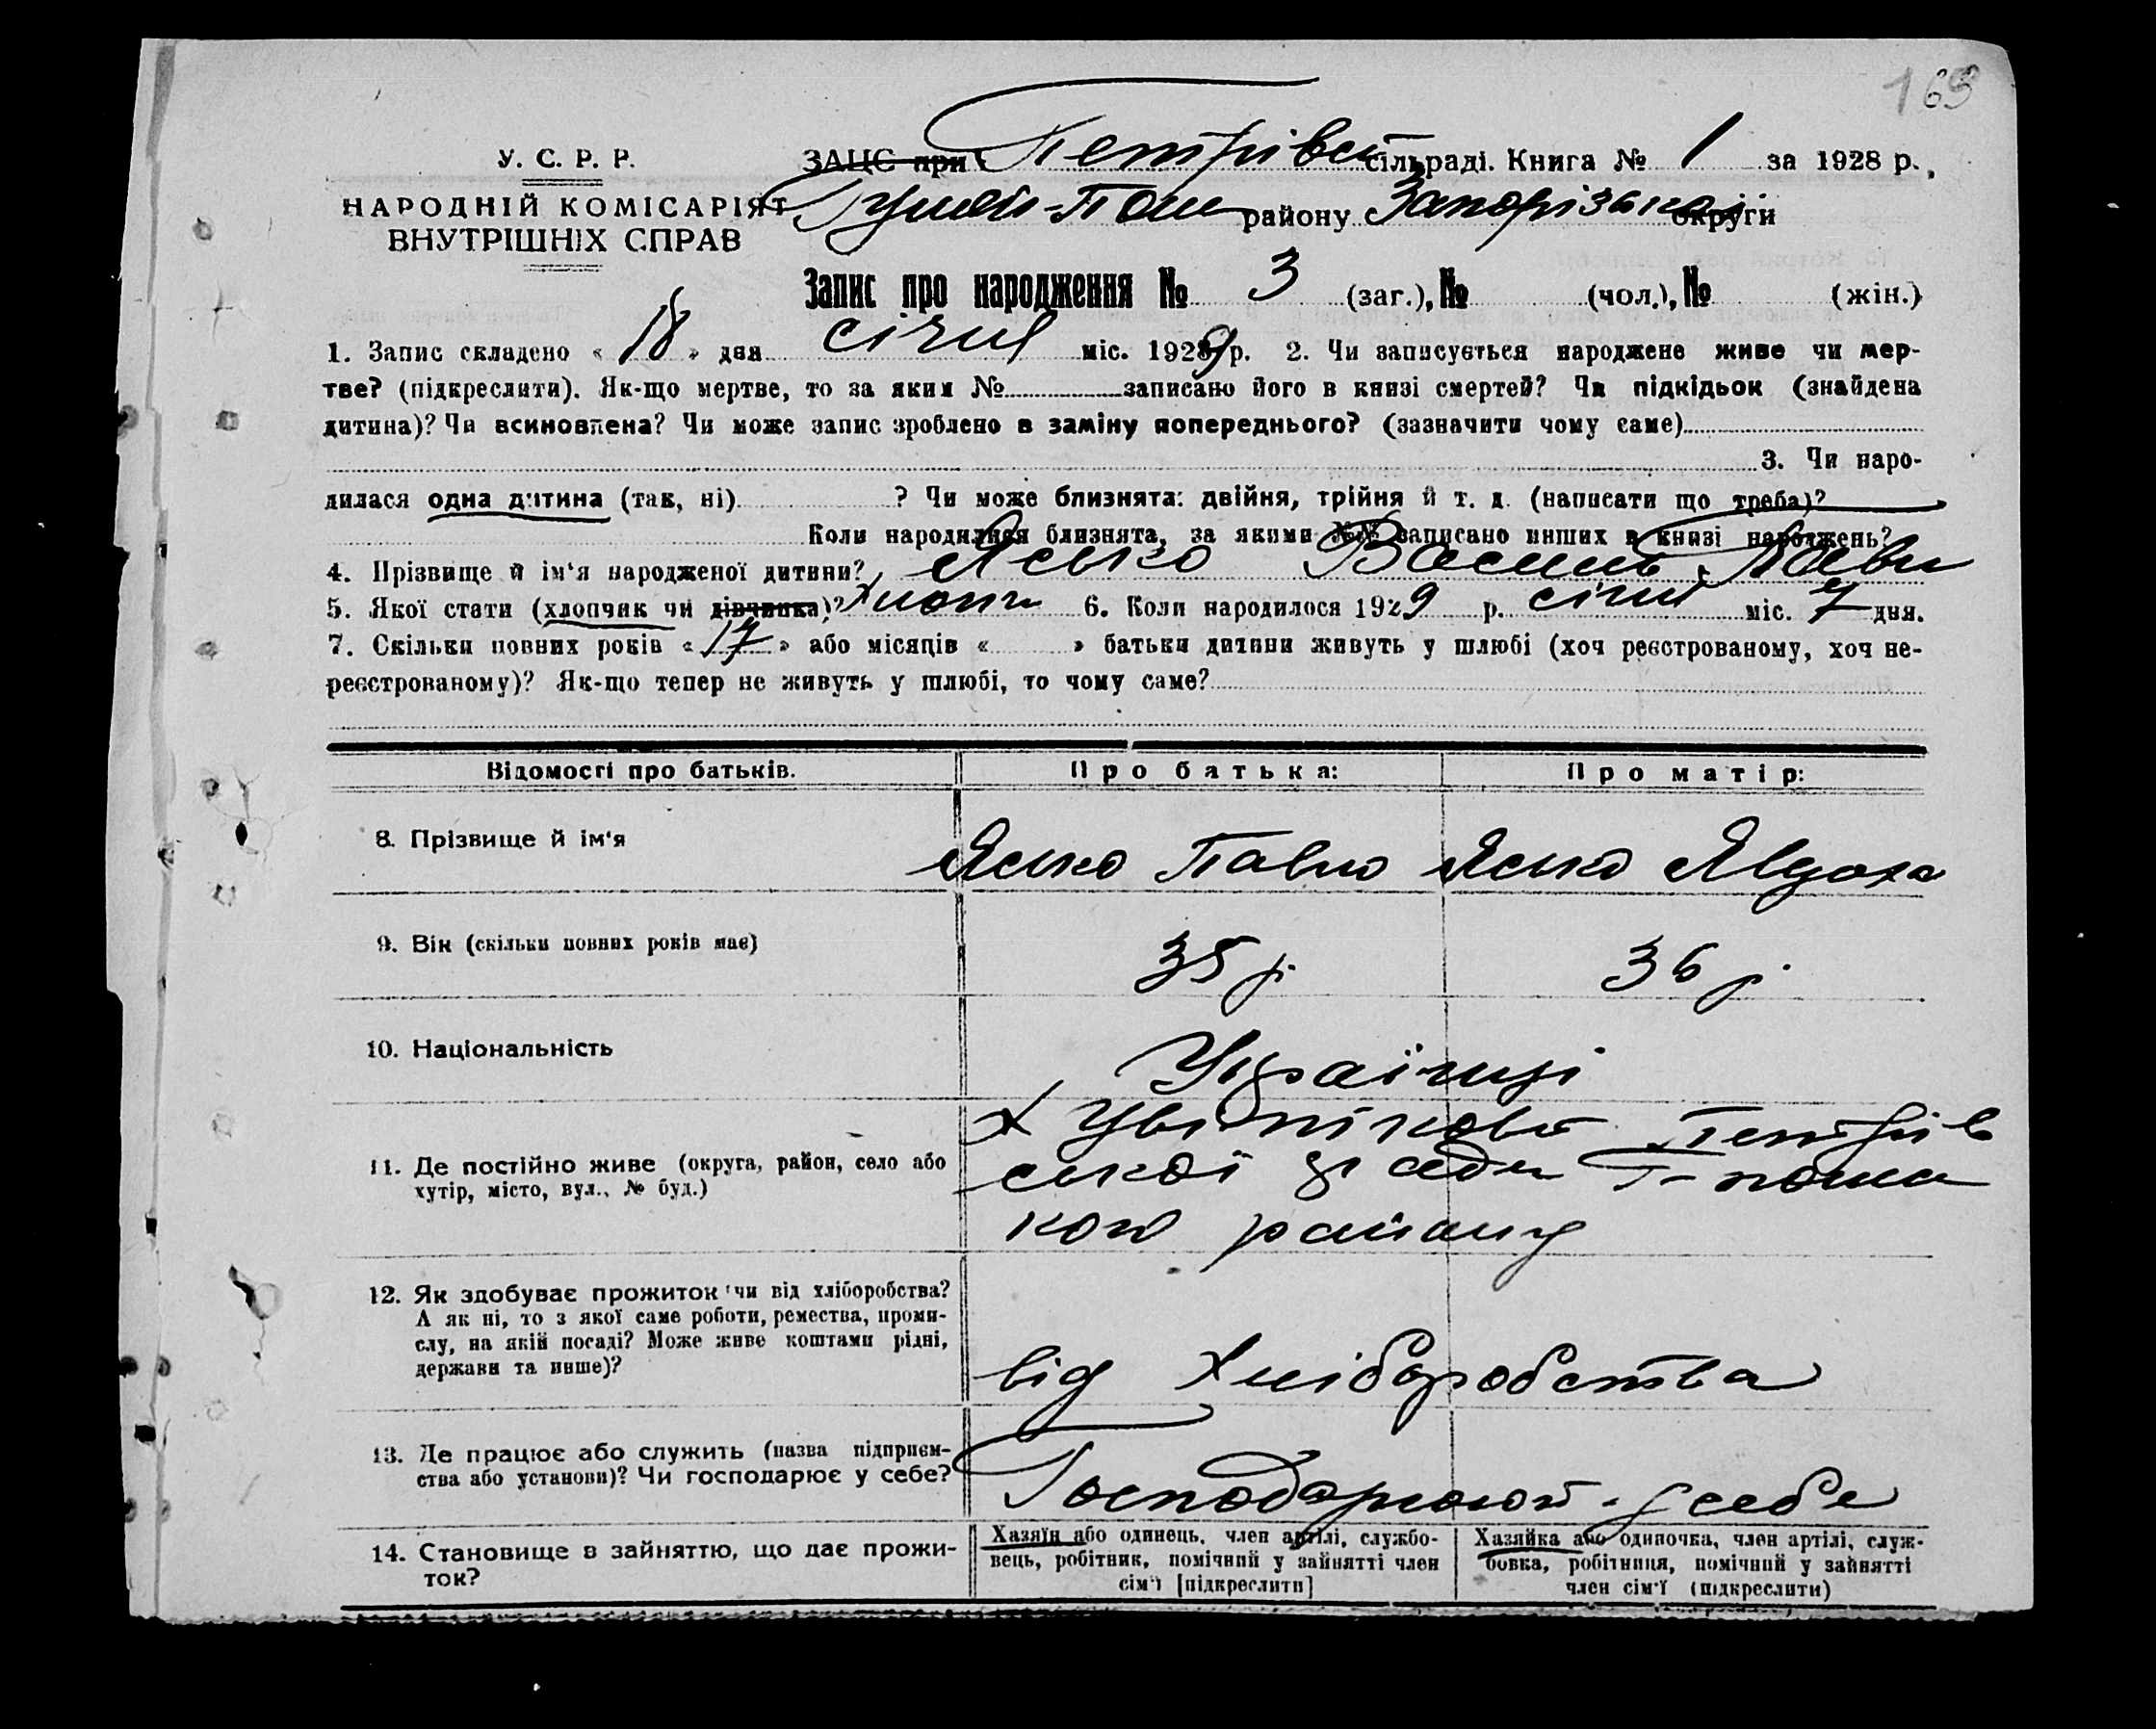 163
У. С. Р. Р.
НАРОДНІЙ КОМІСАРІЯТ
ВНУТРІШНІХ СПРАВ
ЗАЦС при Петрівск сільраді. Книга № 1 за 1928 р.
Гуляй-Поль району Запорізької округи
Запис про народження № 3 (заг.), № (чол.), № (жін.)
1. Запис складено « 18 » дня січня міс. 1929 р. 2. Чи записується народжене живе чи мер-
тве? (підкреслити). Як-що мертве, то за яким № записано його в книзі смертей? Чи підкідьок (знайдена
дитина)? Чи всиновлена? Чи може запис зроблено в заміну попереднього? (зазначити чому саме)
3. Чи наро-
дилася одна дитина (так, ні) ? Чи може близнята: двійня, трійня й т. д. (написати що треба)?
Коли народилися близнята, за якими №№ записано инших в книзі народжень?
4. Прізвище й ім'я народженої дитини? Ясько Василь Павл
5. Якої стати (хлопчик чи дівчинка)? Хлопч 6. Коли народилося 1929 р. січня міс. 7 дня.
7. Скільки повних років « 17 » або місяців « » батьки дитини живуть у шлюбі (хоч реєстрованому, хоч не-
реєстрованому)? Як-що тепер не живуть у шлюбі, то чому саме?
Відомості про батьків. Про батька: Про матір:
8. Прізвище й ім'я Ясько Павло Ясько Явдоха
9. Вік (скільки повних років має) 35 р. 36 р.
10. Національність Українці
11. Де постійно живе (округа, район, село або
хутір, місто, вул., № буд.)
Х Петрів
ської ради Г-поль
кого району
12. Як здобуває прожиток чи від хліборобства?
А як ні, то з якої саме роботи, ремества, проми-
слу, на якій посаді? Може живе коштами рідні,
держави та инше)?
від Хліборобства
13. Де працює або служить (назва підприєм-
ства або установи)? Чи господарює у себе?
Господарюют у себе
14. Становище в зайняттю, що дає прожи-
ток?
Хазяїн або одинець, член артілі, службо-
вець, робітник, помічний у зайнятті член
сім'ї [підкреслити]
Хазяйка або одиночка, член артілі, служ-
бовка, робітниця, помічний у зайнятті
член сім'ї (підкреслити)